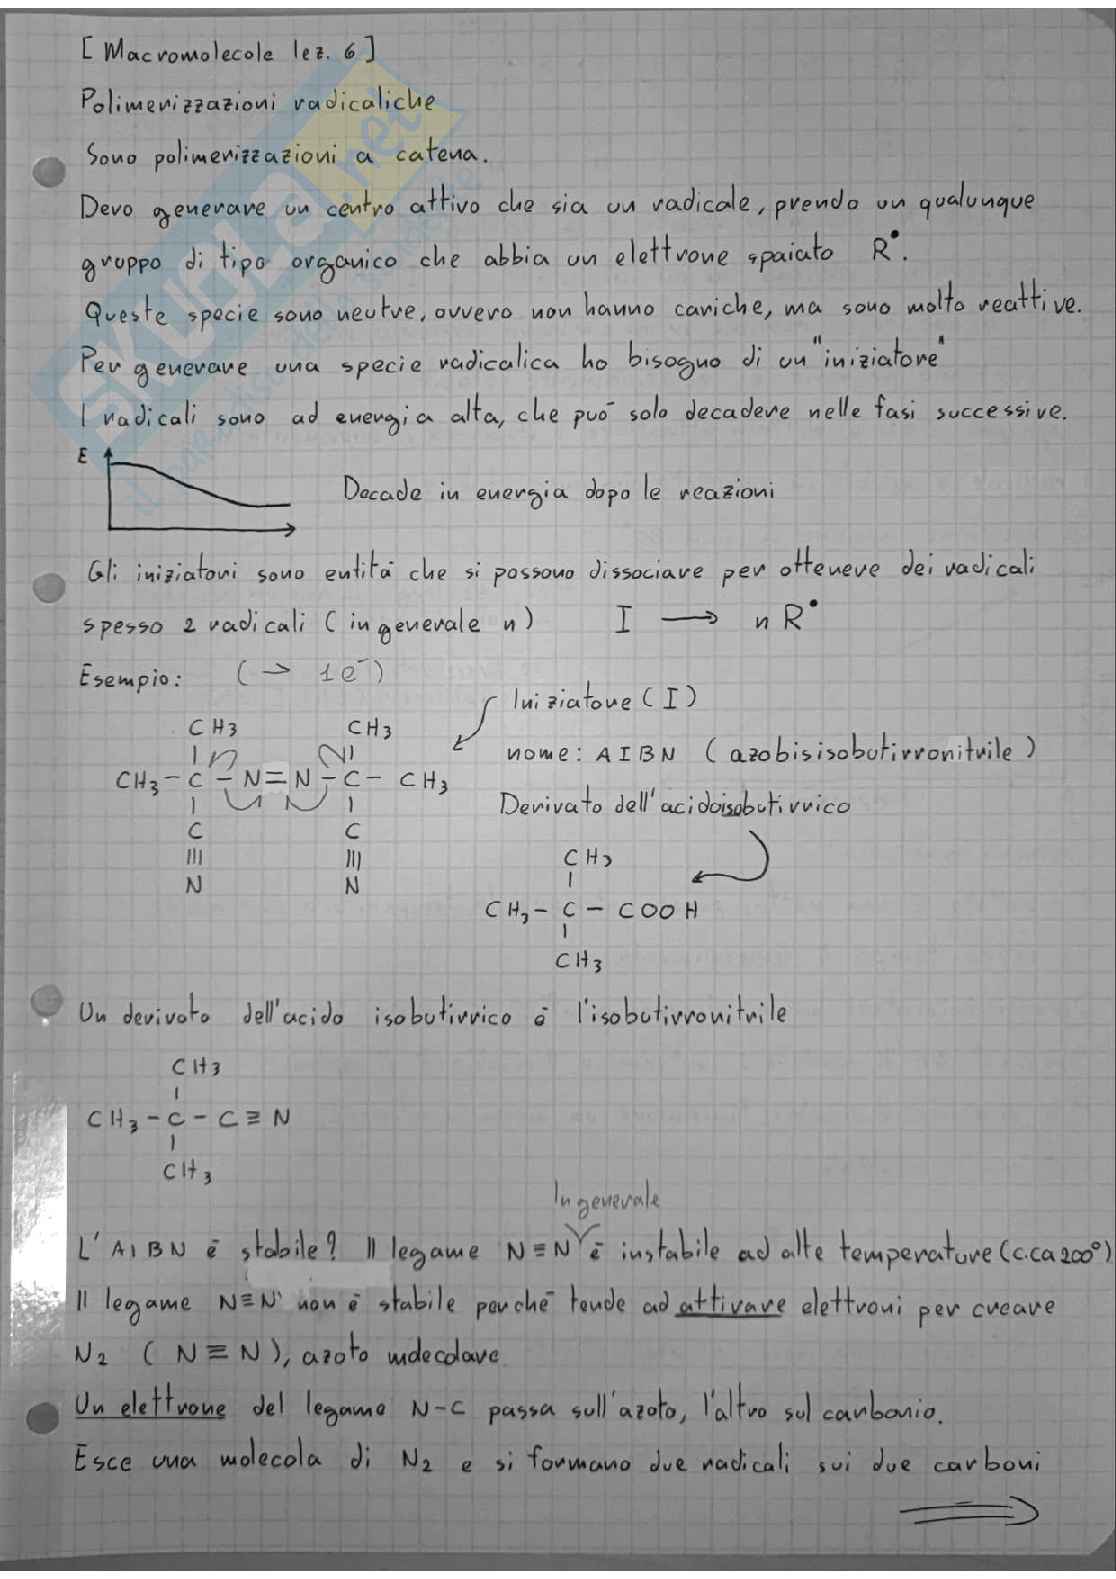 [Macromolecole lez. 6]
Polimerizzazioni radicaliche
Sono polimerizzazioni a catena.
Devo generare un centro attivo che sia un radicale, prendo un qualunque
gruppo di tipo organico che abbia un elettrone spaiato R•.
Queste specie sono neutre, ovvero non hanno cariche, ma sono molto reattive.
Per generare una specie radicalica ho bisogno di un "iniziatore"
I radicali sono ad energia alta, che può solo decadere nelle fasi successive.
E
Decade in energia dopo le reazioni
Gli iniziatori sono entità che si possono dissociare per ottenere dei radicali
spesso 2 radicali (in generale n) I → n R•
Esempio: (⇀ 1e⁻)
Iniziatore (I)
CH3 CH3
nome: AIBN (azobisisobutirronitrile)
CH3 - C - N = N - C - CH3
Derivato dell'acido isobutirrico
C C
≡ ≡
N N
CH3
CH3 - C - COOH
CH3
Un derivato dell'acido isobutirrico è l'isobutirronitrile
CH3
CH3 - C - C ≡ N
CH3
In generale
L'AIBN è stabile? Il legame N≡N è instabile ad alte temperature (c.ca 200°)
Il legame N≡N non è stabile perché tende ad attivare elettroni per creare
N2 (N≡N), azoto molecolare
Un elettrone del legame N-C passa sull'azoto, l'altro sul carbonio.
Esce una molecola di N2 e si formano due radicali sui due carboni
SKUOLA.net